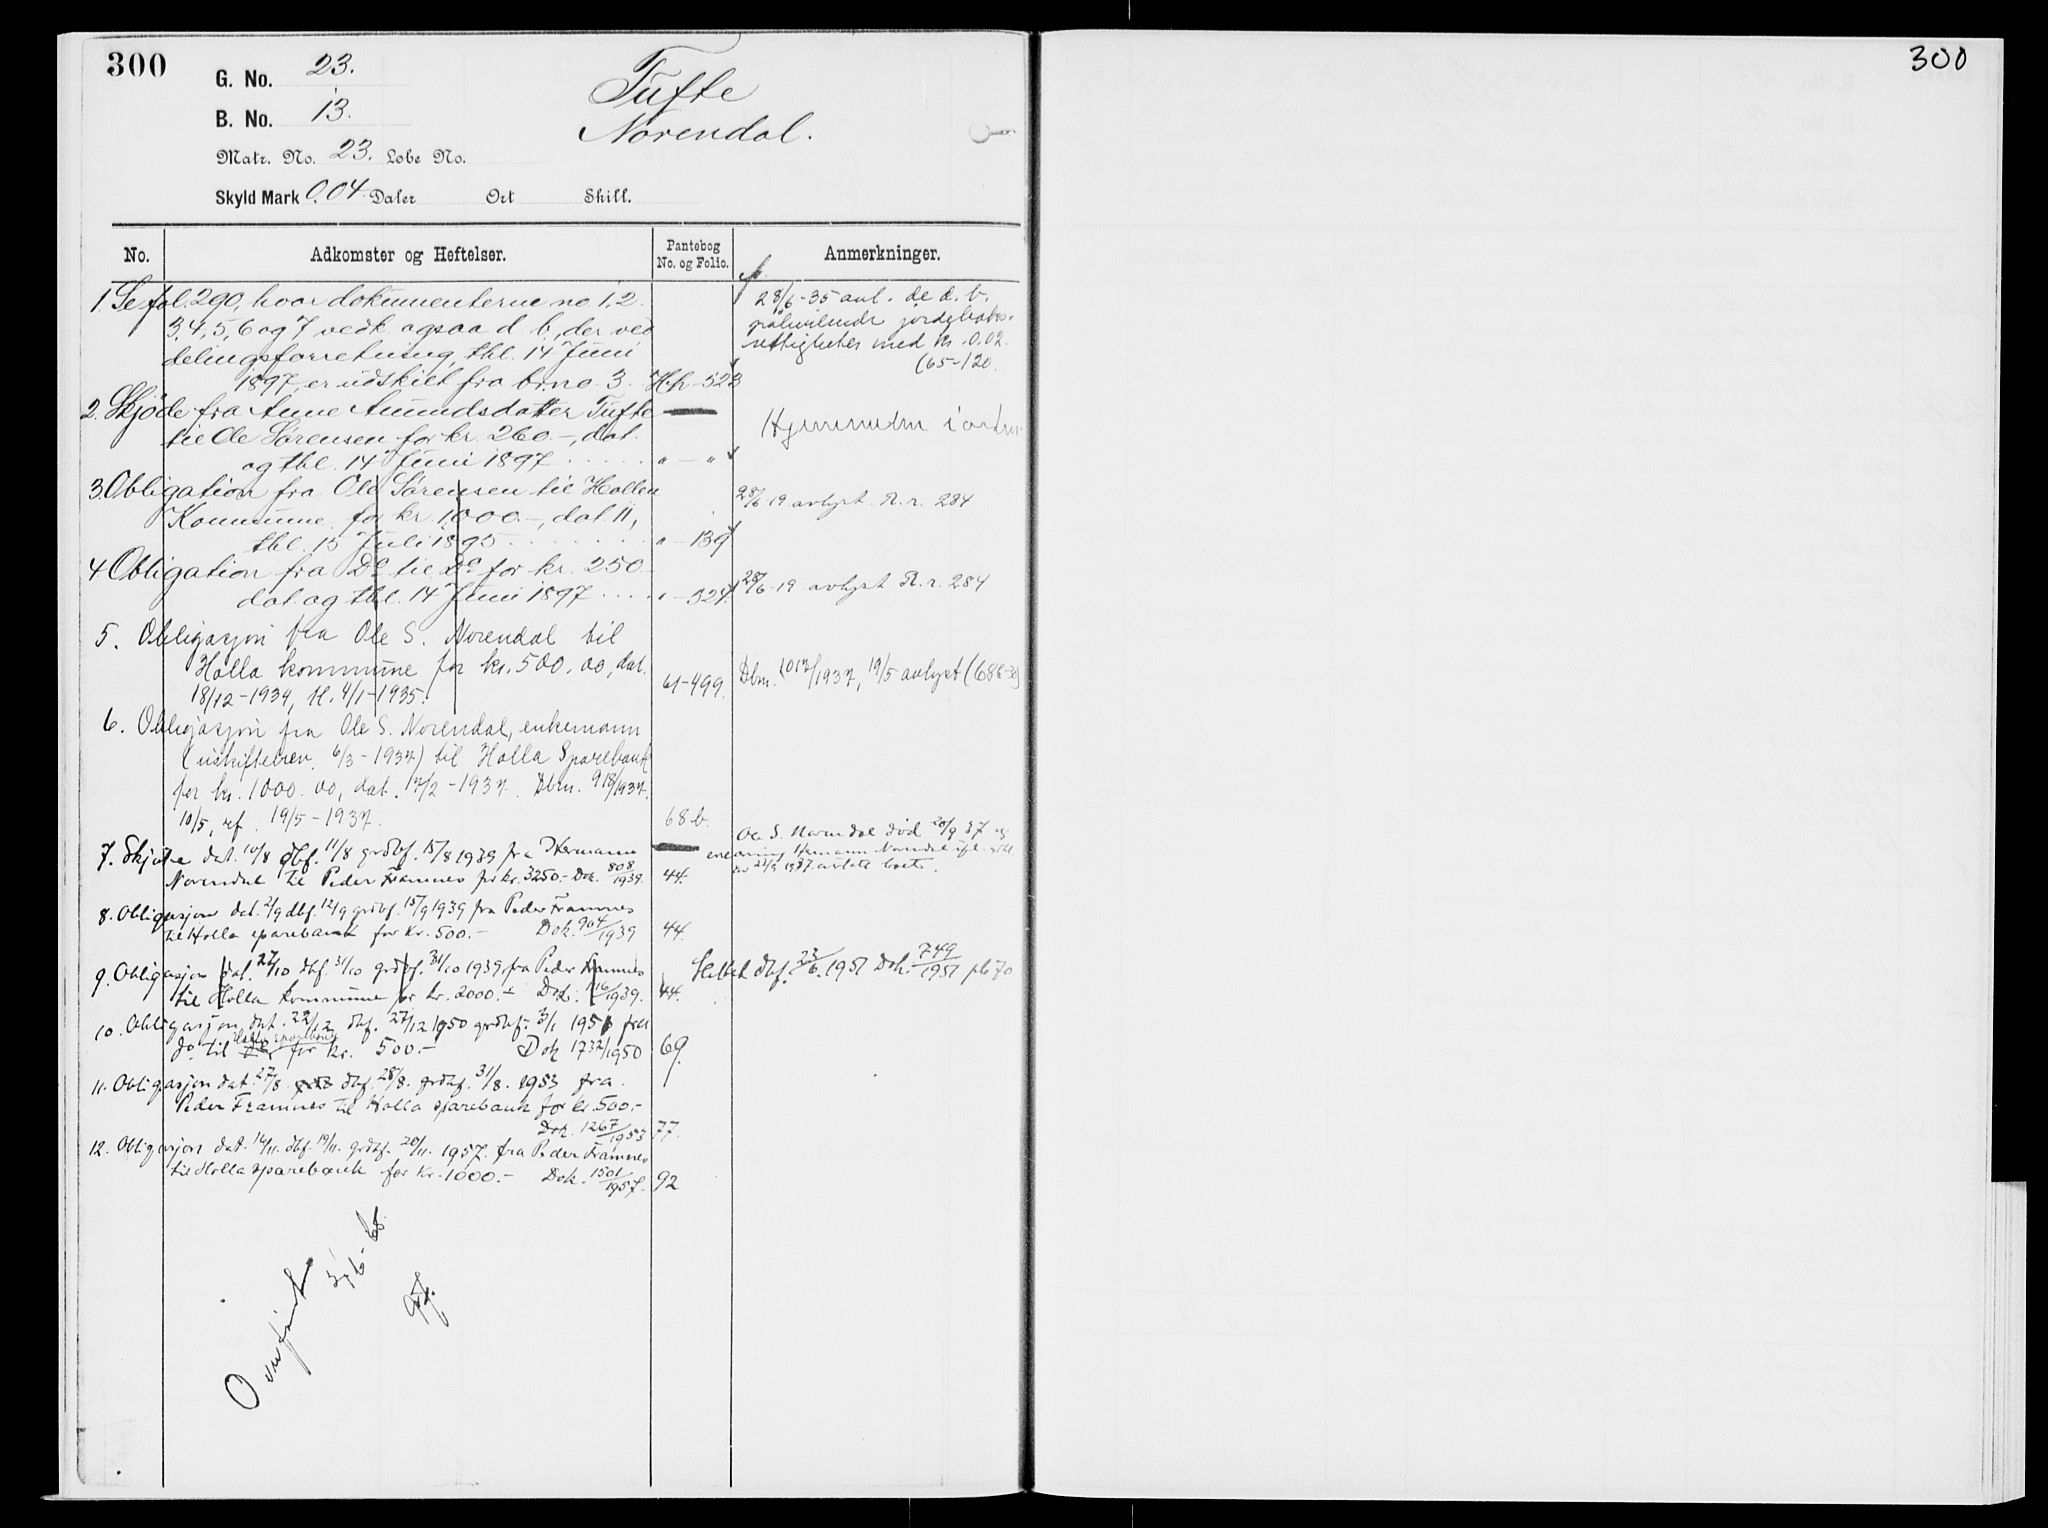 300
300
G. No. 23.
B. No. 13.
Matr. No. 23. Løbe No.
Skyld Mark 0.04. Daler Ort Skill.
Tufte
Norendal.
No. Adkomster og Heftelser. Pantebog No. og Folio. Anmerkninger.
1. Se fol. 290, hvor dokumenterne no. 1, 2.
3, 4, 5, 6 og 7 vedk. ogsaa d. b., der ved
delingsforretning, thl. 14 Juni
1897, er udskilt fra br.no. 3. H.h - 523
28/6-35 anl. de d. b.
påhvilende jordeboks-
rettigheter med kr. 0.02.
(65-120.
2. Skjøde fra Anne Amundsdatter Tufte
til Ole Sørensen for kr. 260.-, dat.
og thl. 14 Juni 1897 . . . . . " - "
Hjemmelen i orden.
3. Obligation fra Ole Sørensen til Hollen
Kommune for kr. 1,000.-, dat. 11,
thl. 15 Juli 1895 . . . . . . . " - 139
28/6-19 avlyst R. r. 284
4 Obligation fra Do til Do for kr. 250
dat. og thl. 14 Juni 1897 . . . . " - 524.
28/6-19 avlyst R. r. 284
5. Obligasjon fra Ole S. Norendal til
Holla kommune for kr. 500.00, dat.
18/12-1934, tl. 4/1-1935. 61-499.
Dbnr. 1017/1937, 19/5 avlyst (68
6. Obligasjon fra Ole S. Norendal, enkemann
(uskiftebrev 6/3-1937) til Holla Sparebank
for kr. 1000.00, dat. 17/2-1937. Dbnr. 918/1937.
10/5, ref. 19/5-1937. 68 b.
7. Skjøte dat. 10/8 dbf. 11/8 grdbf. 15/8 1939 fra Hermann
Norendal til Peder Framnes for kr. 3250.- Dok. 808/1939. 44.
Ole S. Norendal død 20/9 37 og
enearving Hermann Norendal
8. Obligasjon dat. 2/9 dbf. 12/9 grdbf. 15/9 1939 fra Peder Framnes
til Holla sparebank for kr. 500.- Dok. 904/1939 44.
9. Obligasjon dat. 27/10 dbf. 31/10 grdbf. 31/10 1939 fra Peder Framnes
til Holla kommune for kr. 2000.- Dok. 1116/1939. 44.
Slettet dbf. 23/6. 1951 Dok. 749/1951 pb 70
10. Obligasjon dat. 22/12 dbf. 27/12 1950 grdbf. 3/1 1951 fra
do til Holla sparebank for kr. 500.- Dok 1732/1950 69.
11. Obligasjon dat. 27/8 dbf. 28/8. grdbf. 31/8. 1953 fra
Peder Framnes til Holla sparebank for kr. 500.-
Dok. 1267/1953 77.
12. Obligasjon dat. 16/11. dbf. 19/11. grdbf. 20/11. 1957. fra Peder Framnes
til Holla sparebank for kr. 1000.- Dok. 1501/1957. 92
Overført
3/6-68